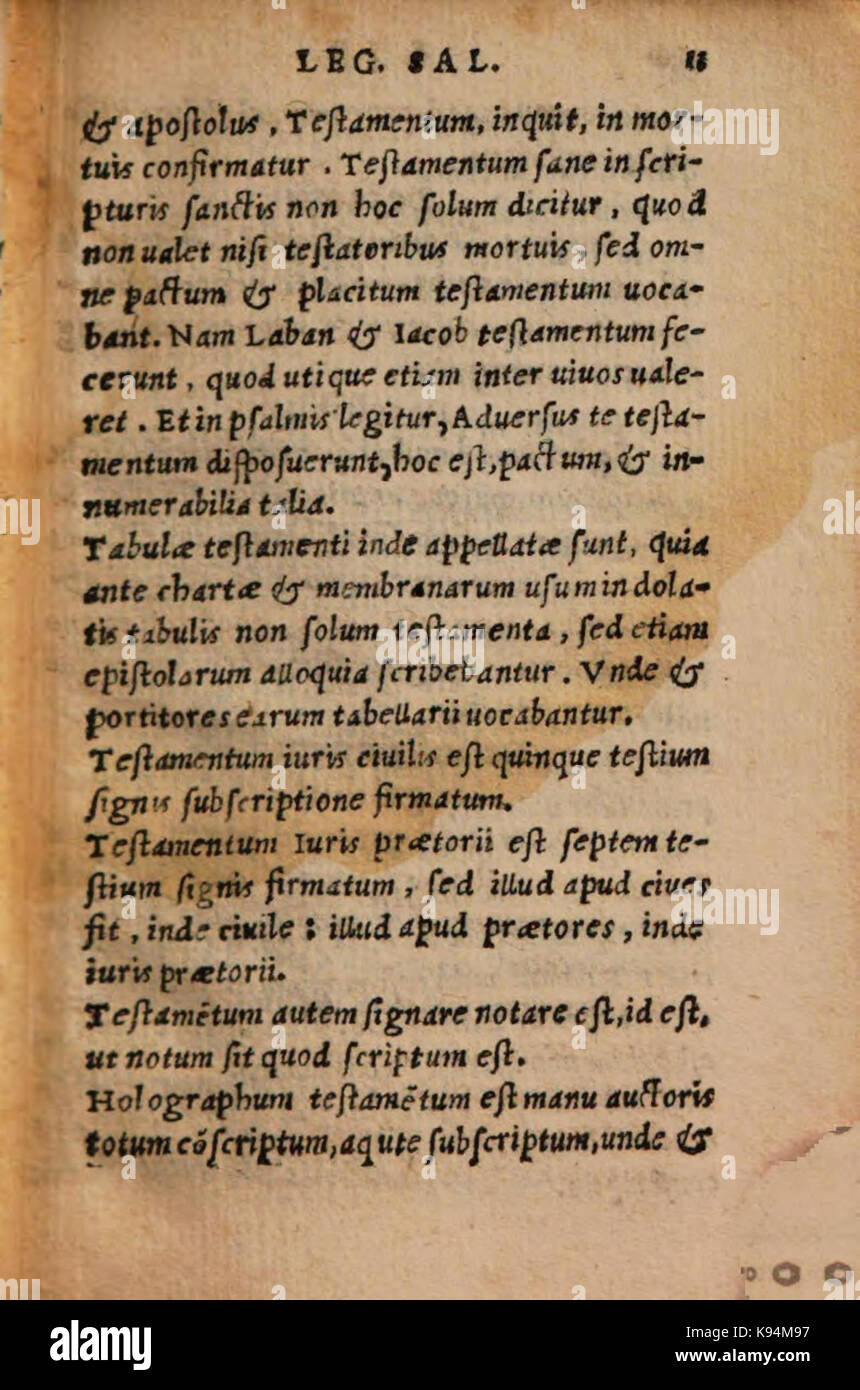 LEG. SAL. 11
& apoſtolus, Teſtamentum, inquit, in mor-
tuis confirmatur. Teſtamentum ſane in ſcri-
pturis ſanctis non hoc ſolum dicitur, quod
non ualet niſi teſtatoribus mortuis, ſed om-
ne pactum & placitum teſtamentum uoca-
bant. Nam Laban & Iacob teſtamentum fe-
cerunt, quod utique etiam inter uiuos uale-
ret. Et in pſalmis legitur, Aduerſus te teſta-
mentum diſpoſuerunt, hoc eſt, pactum, & in-
numerabilia talia.
Tabulæ teſtamenti inde appellatæ ſunt, quia
ante chartæ & membranarum uſum in dola-
tis tabulis non ſolum teſtamenta, ſed etiam
epiſtolarum alloquia ſcribebantur. Vnde &
portitores earum tabellarii uocabantur.
Teſtamentum iuris ciuilis eſt quinque teſtium
ſignis ſubſcriptione firmatum.
Teſtamentum Iuris prætorii eſt ſeptem te-
ſtium ſignis firmatum, ſed illud apud ciues
fit, inde ciuile: illud apud prætores, inde
iuris prætorii.
Teſtamētum autem ſignare notare eſt, id eſt,
ut notum ſit quod ſcriptum eſt.
Holographum teſtamētum eſt manu auctoris
totum cōſcriptum, aqute ſubſcriptum, unde &
alamy
K94M97
www.alamy.com